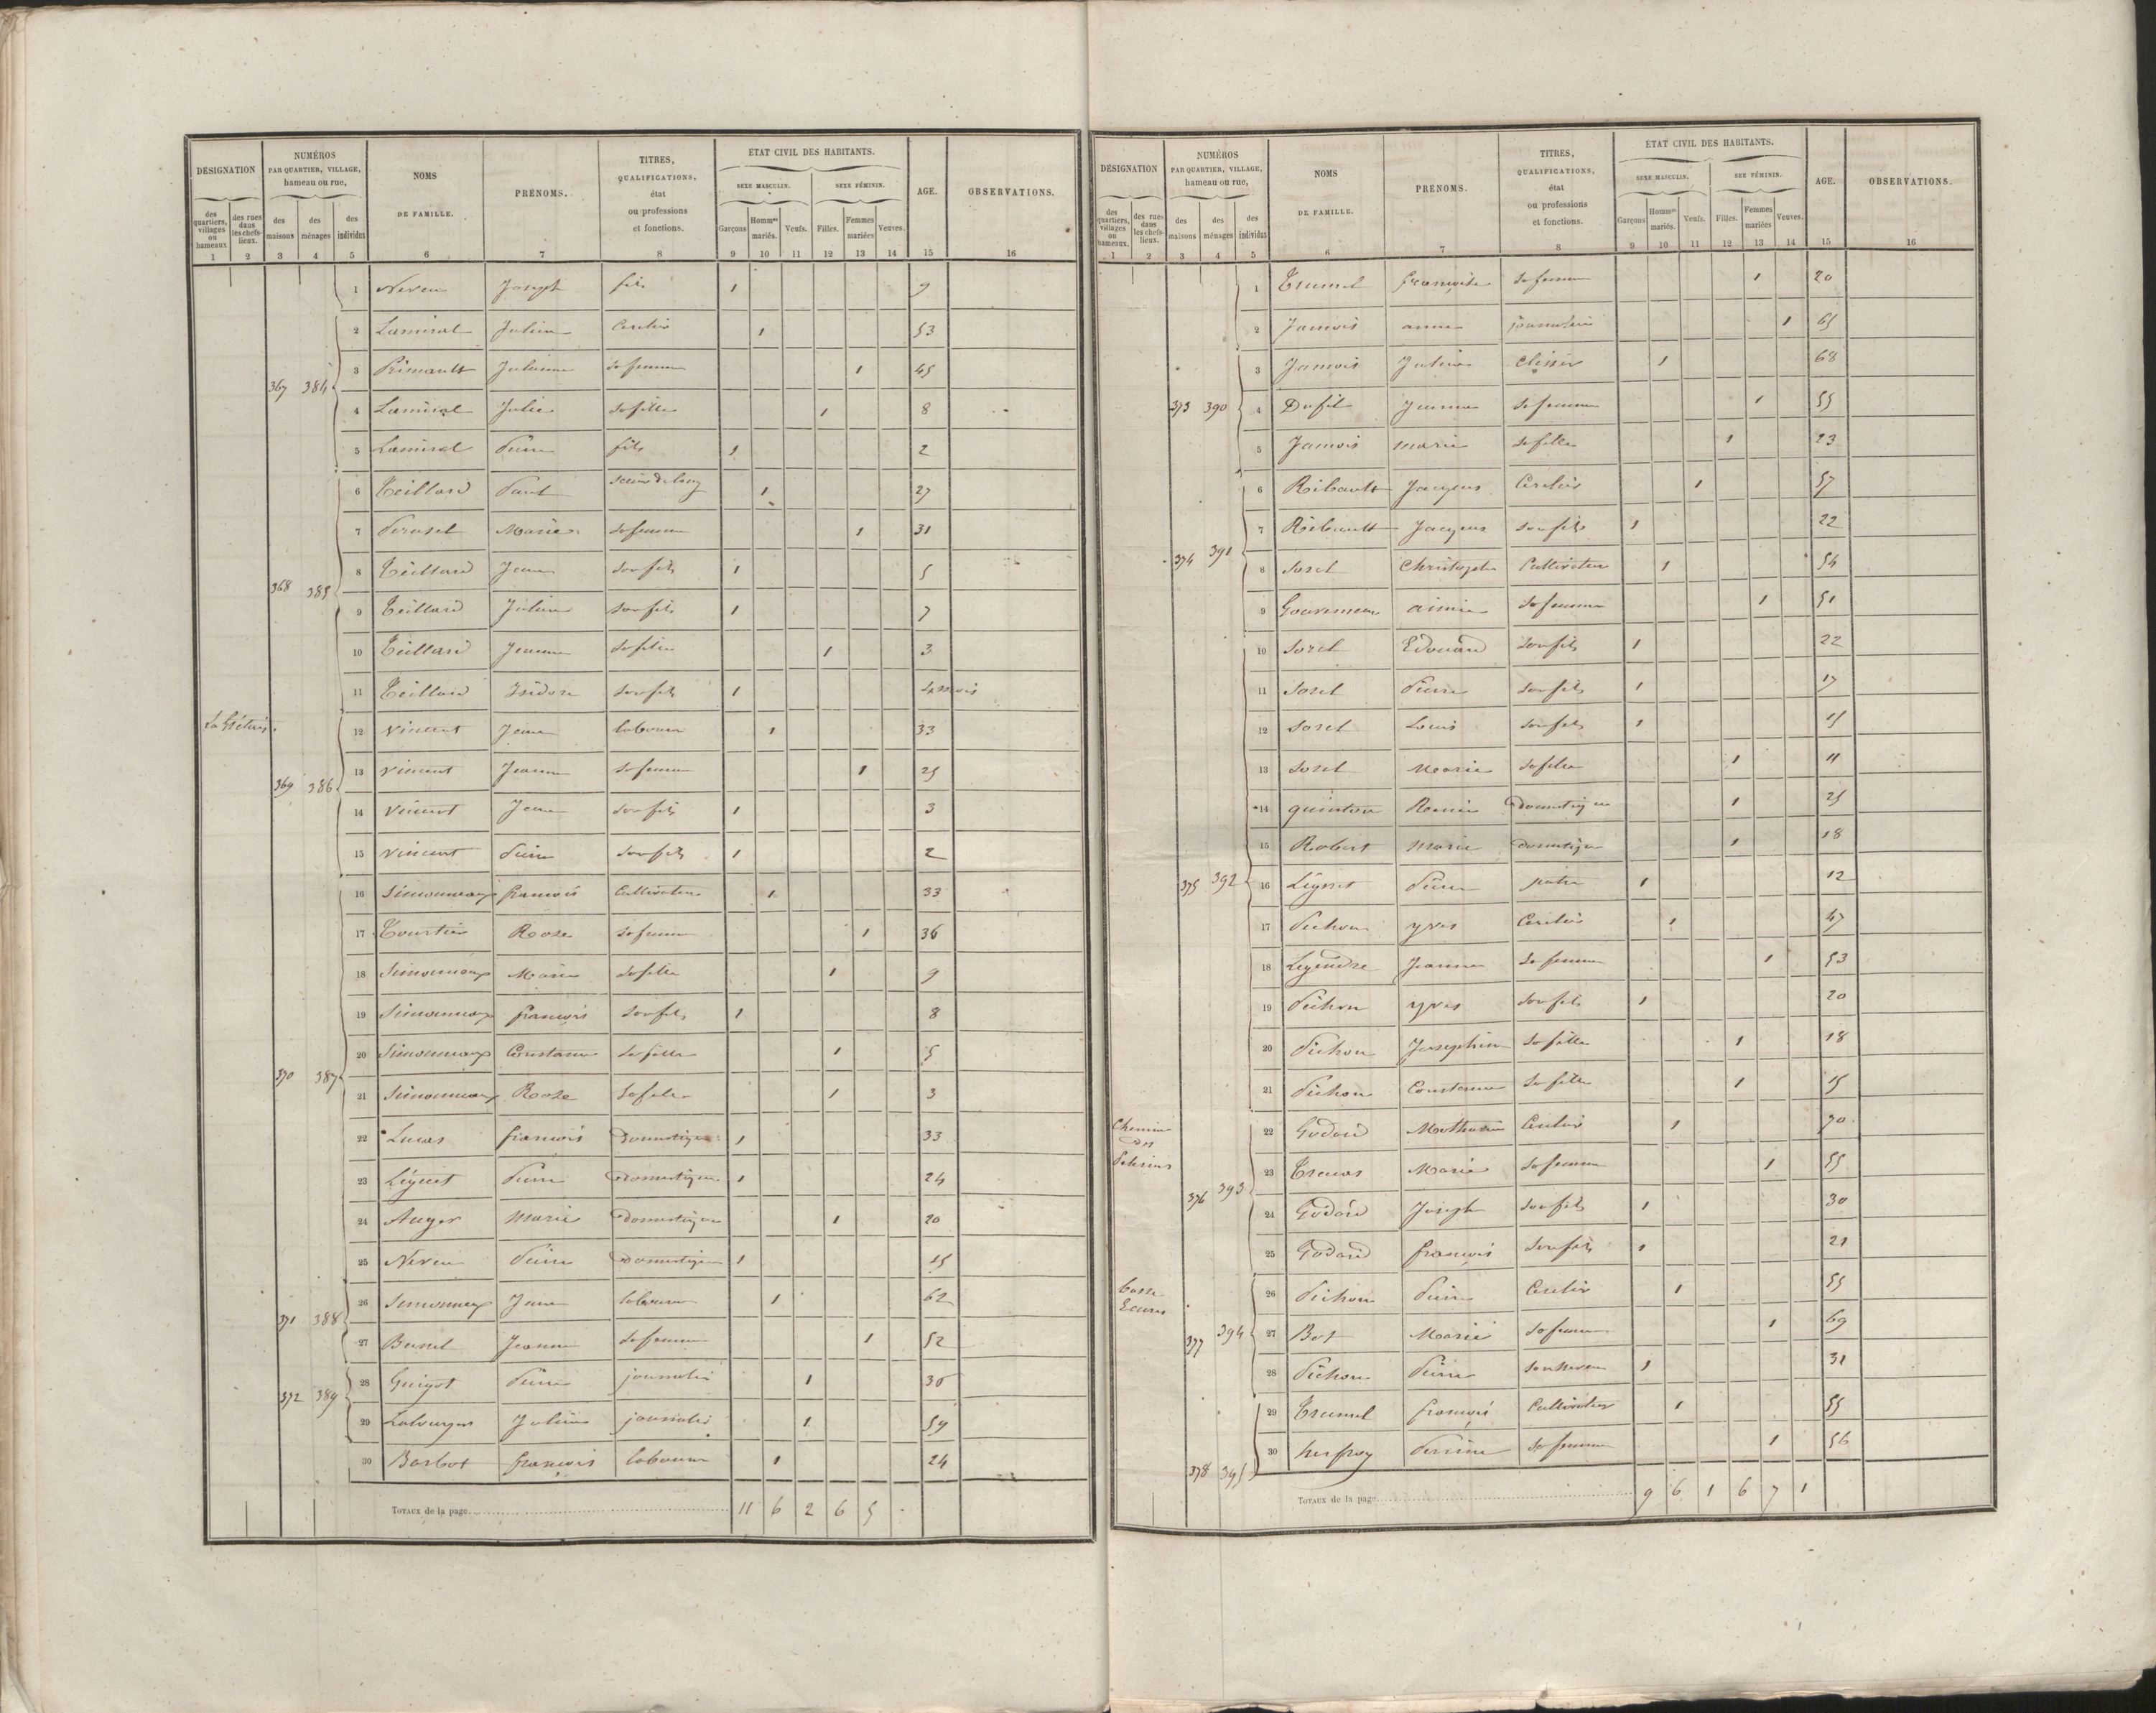 DÉSIGNATION NUMÉROS PAR QUARTIER, VILLAGE, hameau ou rue, NOMS DE FAMILLE. PRÉNOMS. TITRES, QUALIFICATIONS, état ou professions et fonctions. ETAT CIVIL DES HABITANTS. AGE. OBSERVATIONS.
SEXE MASCULIN. SEXE FÉMININ.
des quartiers, villages ou hameaux des rues dans les chefs-lieux. des maisons des ménages des individus Garçons Hommes mariés. Veufs. Filles. Femmes mariées Veuves.
1 2 3 4 5 6 7 8 9 10 11 12 13 14 15 16
1 Neveu Joseph fils 1 9
2 Lamiral Julien 1 53
367 384
3 Primault Julienne sa femme 1 45
4 Lamiral Julie sa fille 1 8
5 Lamiral Pierre fils 1 2
6 Teillard Paul 1 27
7 Marie sa femme 1 31
368 385
8 Teillard Jean son fils 1 5
9 Teillard Julien son fils 1 7
10 Teillard Jeanne sa fille 1 3
11 Teillard Isidore son fils 1 4 mois
12 Vincent Jean laboureur 1 33
369 386
13 Vincent Jeanne sa femme 1 25
14 Vincent Jean son fils 1 3
15 Vincent Pierre son fils 1 2
16 Simonneaux françois Cultivateur 1 33
17 Tourtier Rose sa femme 1 36
18 Simonneaux Marie sa fille 1 9
19 Simonneaux françois son fils 1 8
20 Simonneaux Constance sa fille 1 5
370 387
21 Simonneaux Rose sa fille 1 3
22 Lucas françois Domestique 1 33
23 Pierre Domestique 1 24
24 Auger Marie Domestique 1 20
25 Neveu Pierre Domestique 1 15
26 Simonneaux Jean laboureur 1 62
371 388
27 Bunel Jeanne sa femme 1 52
28 Guigot Pierre journalier 1 30
372 389
29 Julien journalier 1 59
30 Barbot françois laboureur 1 24
TOTAUX de la page 11 6 2 6 5
DÉSIGNATION NUMÉROS PAR QUARTIER, VILLAGE, hameau ou rue, NOMS DE FAMILLE. PRÉNOMS. TITRES, QUALIFICATIONS, état ou professions et fonctions. ETAT CIVIL DES HABITANTS. AGE. OBSERVATIONS.
SEXE MASCULIN. SEE FÉMININ.
des quartiers, villages ou hameaux. des rues dans les chefs-lieux. des maisons des ménages des individus Garçons Hommes mariés. Veufs. Filles. Femmes mariées Veuves.
1 2 3 4 5 6 7 8 9 10 11 12 13 14 15 16
1 Trumel françoise sa femme 1 20
2 Jamois anne journalière 1 65
3 Jamois Julien 1 68
373 390
4 Dufil Jeanne sa femme 1 55
5 Jamois marie sa fille 1 23
6 Ribault Jacques 1 57
7 Ribault Jacques son fils 1 22
374 391
8 Sorel Christophe Cultivateur 1 54
9 Gouverneur aimée sa femme 1 51
10 Sorel Edouard son fils 1 22
11 Sorel Pierre son fils 1 17
12 Sorel Louis son fils 1 15
13 Sorel Marie sa fille 1 11
14 quinton Domestique 1 25
15 Robert Marie Domestique 1 18
375 392
16 Pierre patre 1 12
17 Pichon yves 1 47
18 Legendre Jeanne sa femme 1 53
19 Pichon yves son fils 1 20
20 Pichon Josephine sa fille 1 18
21 Pichon Constance sa fille 1 15
Chemin des
22 Godard Mathurin 1 70
23 Marie sa femme 1 55
376 393
24 Godard Joseph son fils 1 30
25 Godard françois son fils 1 21
26 Pichon Pierre 1 55
377 394
27 Bot Marie sa femme 1 69
28 Pichon Pierre son neveu 1 31
29 Trumel françois Cultivateur 1 55
30 herfroy Perrine sa femme 1 56
378 395
TOTAUX de la page 9 6 1 6 7 1